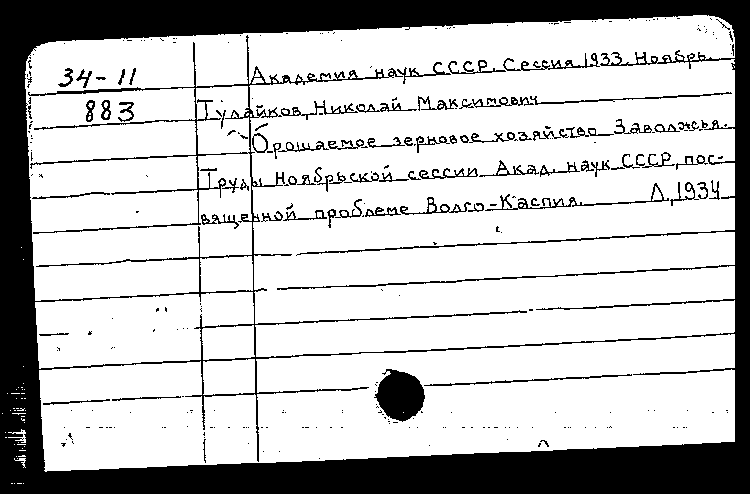 34-11
883
Академия наук СССР. Сессия 1933. Ноябрь.
Тулайков, Николай Максимович
Орошаемое зерновое хозяйство Заволжья.
Труды Ноябрьской сессии Акад. наук СССР, пос-
вященной проблеме Волго-Каспия. Л., 1934